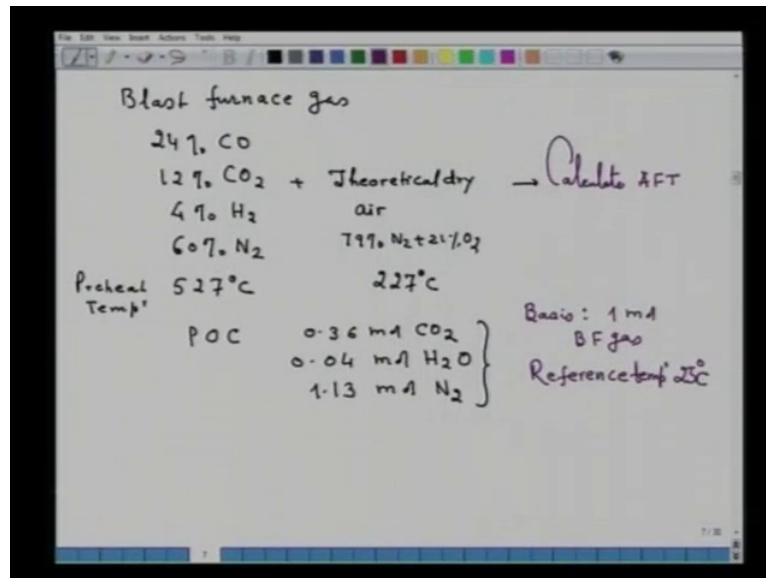 File Edit View Insert Actions Tools Help
Blast furnace gas
24%. CO
12%. CO2 + Theoretical dry → Calculate AFT
4% H2 air
60%. N2 79% N2 + 21% O2
Preheat Tempr 527°C 227°C
POC 0.36 mol CO2
0.04 mol H2O
1.13 mol N2
Basis: 1 mol
BF gas
Reference tempr 25°C
7/30
7